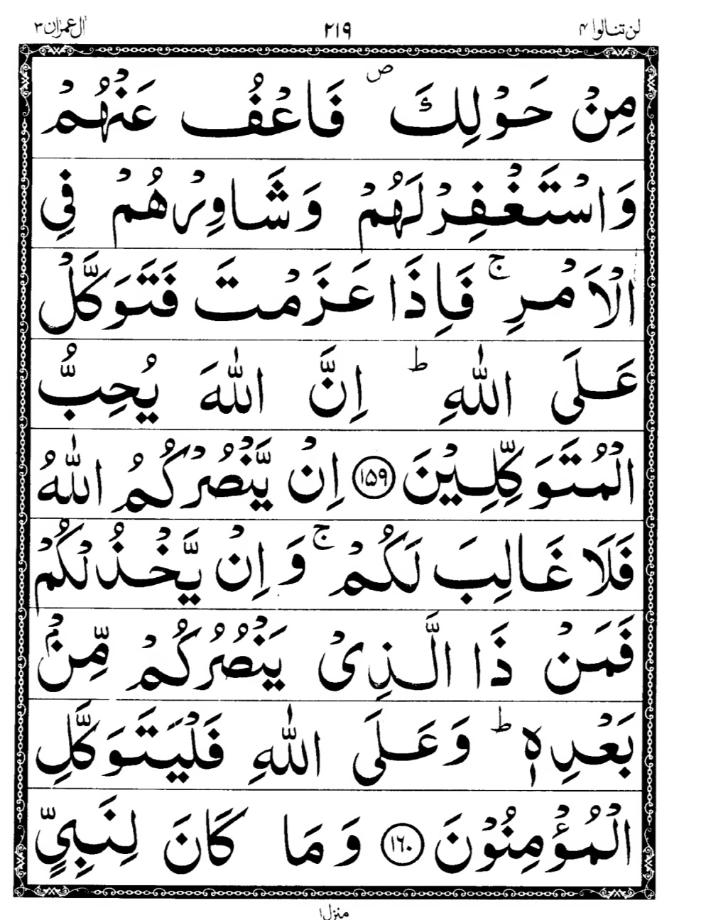 لن تنالوا ۴ ۲۱۹ اٰل عمرٰن ۳
مِنْ حَوْلِكَ ۪ فَاعْفُ عَنْهُمْ
وَاسْتَغْفِرْلَهُمْ وَشَاوِرْهُمْ فِي
الْاَمْرِ ۚ فَاِذَا عَزَمْتَ فَتَوَكَّلْ
عَلَى اللّٰهِ ؕ اِنَّ اللّٰهَ يُحِبُّ
الْمُتَوَكِّلِيْنَ ﴿۱۵۹﴾ اِنْ يَّنْصُرْكُمُ اللّٰهُ
فَلَا غَالِبَ لَكُمْ ۚ وَاِنْ يَّخْذُلْكُمْ
فَمَنْ ذَا الَّذِیْ يَنْصُرُكُمْ مِّنْۢ
بَعْدِهٖ ؕ وَعَلَى اللّٰهِ فَلْيَتَوَكَّلِ
الْمُؤْمِنُوْنَ ﴿۱۶۰﴾ وَمَا كَانَ لِنَبِيٍّ
منزل ۱